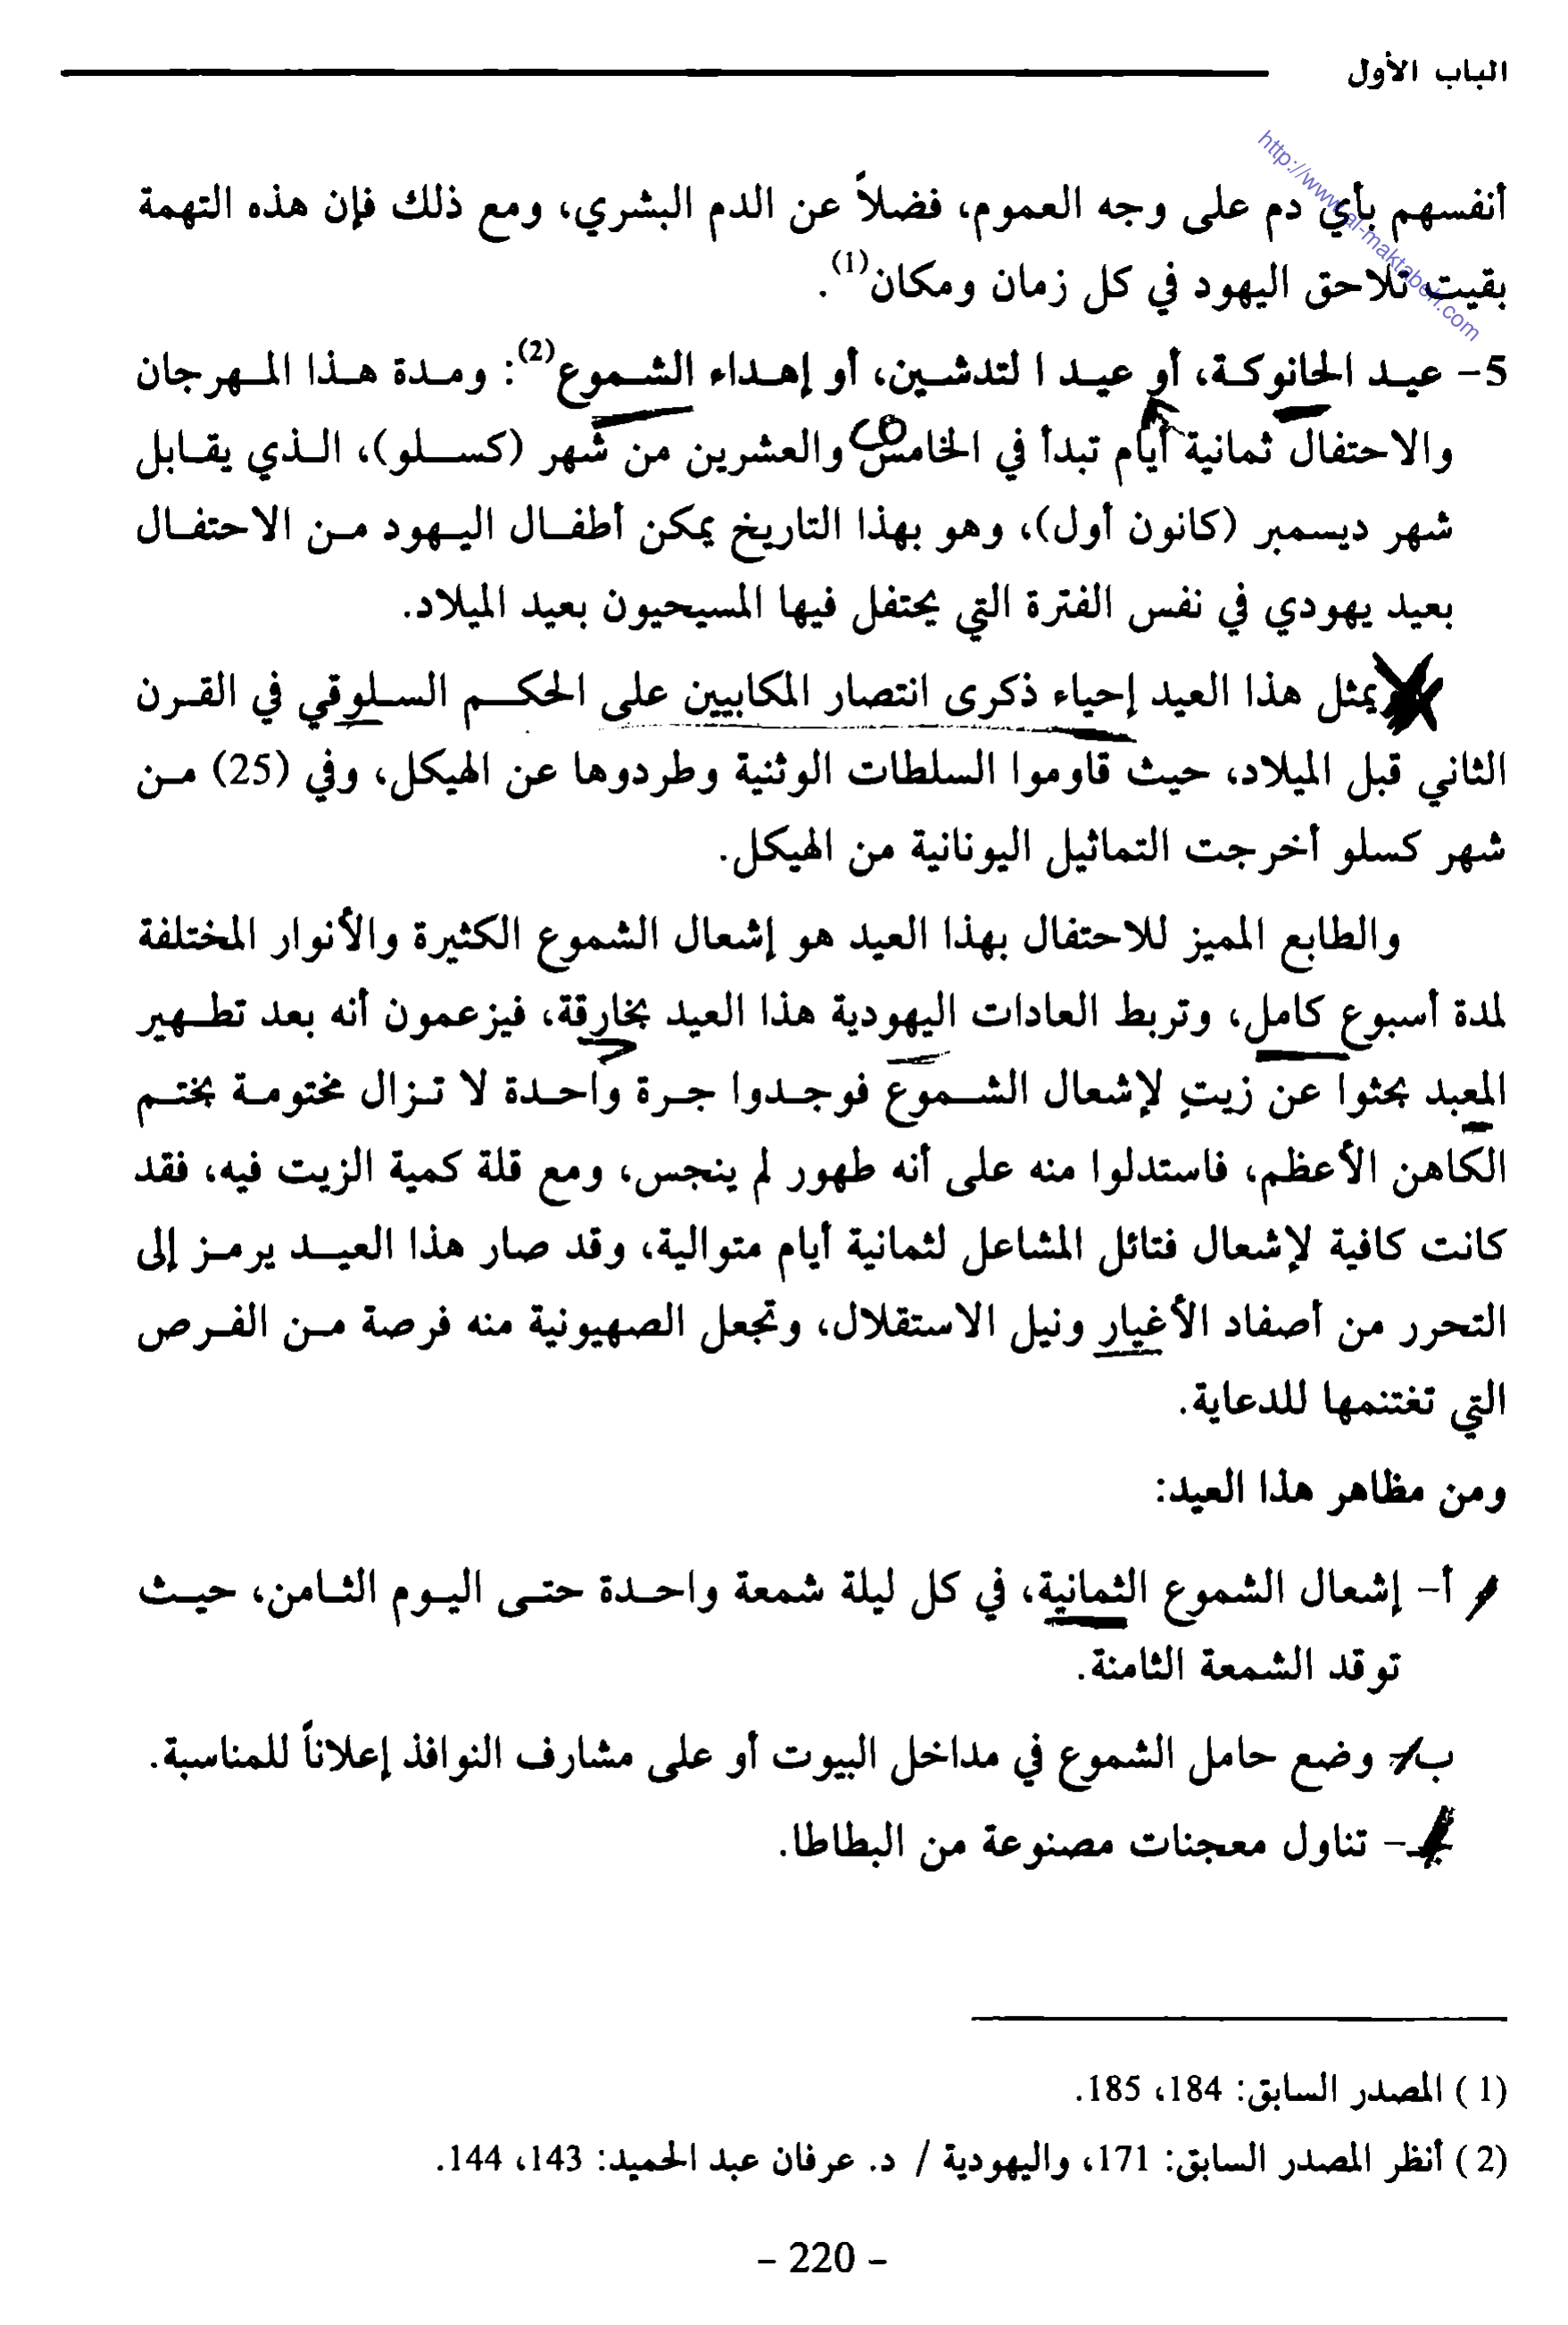 الباب الأول
http://www.al-maktabeh.com
أنفسهم بأي دم على وجه العموم، فضلاً عن الدم البشري، ومع ذلك فإن هذه التهمة
بقيت تلاحق اليهود في كل زمان ومكان(1).
5- عيد الحانوكة، أو عيد ا لتدشين، أو إهداء الشموع(2): ومدة هذا المهرجان
والاحتفال ثمانية أيام تبدأ في الخامس والعشرين من شهر (كسلو)، الذي يقابل
شهر ديسمبر (كانون أول)، وهو بهذا التاريخ يمكن أطفال اليهود من الاحتفال
بعيد يهودي في نفس الفترة التي يحتفل فيها المسيحيون بعيد الميلاد.
يمثل هذا العيد إحياء ذكرى انتصار المكابيين على الحكم السلوقي في القرن
الثاني قبل الميلاد، حيث قاوموا السلطات الوثنية وطردوها عن الهيكل، وفي (25) من
شهر كسلو أخرجت التماثيل اليونانية من الهيكل.
والطابع المميز للاحتفال بهذا العيد هو إشعال الشموع الكثيرة والأنوار المختلفة
لمدة أسبوع كامل، وتربط العادات اليهودية هذا العيد بخارقة، فيزعمون أنه بعد تطهير
المعبد بحثوا عن زيتٍ لإشعال الشموع فوجدوا جرة واحدة لا تزال مختومة بختم
الكاهن الأعظم، فاستدلوا منه على أنه طهور لم ينجس، ومع قلة كمية الزيت فيه، فقد
كانت كافية لإشعال فتائل المشاعل لثمانية أيام متوالية، وقد صار هذا العيد يرمز إلى
التحرر من أصفاد الأغيار ونيل الاستقلال، وتجعل الصهيونية منه فرصة من الفرص
التي تغتنمها للدعاية.
ومن مظاهر هذا العيد:
أ- إشعال الشموع الثمانية، في كل ليلة شمعة واحدة حتى اليوم الثامن، حيث
توقد الشمعة الثامنة.
ب- وضع حامل الشموع في مداخل البيوت أو على مشارف النوافذ إعلاناً للمناسبة.
جـ- تناول معجنات مصنوعة من البطاطا.
(1 ) المصدر السابق: 184، 185.
(2 ) أنظر المصدر السابق: 171، واليهودية / د. عرفان عبد الحميد: 143، 144.
- 220 -